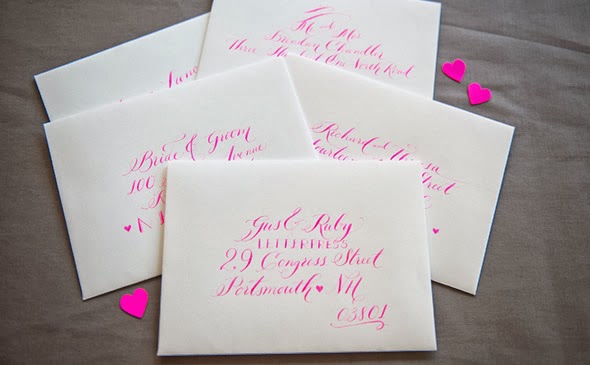 Mr and Mrs
Brendan Chandler
Three Hundred One North Road
Bride & Groom
100 Avenue
Richard and
Street
Gus & Ruby
LETTERPRESS
29 Congress Street
Portsmouth ♥ NH
03801